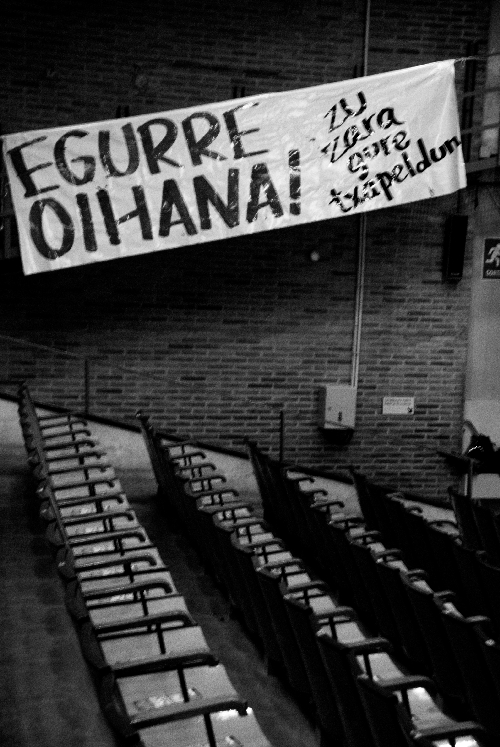 EGURRE
OIHANA!
zu
zara
gure
txapeldun